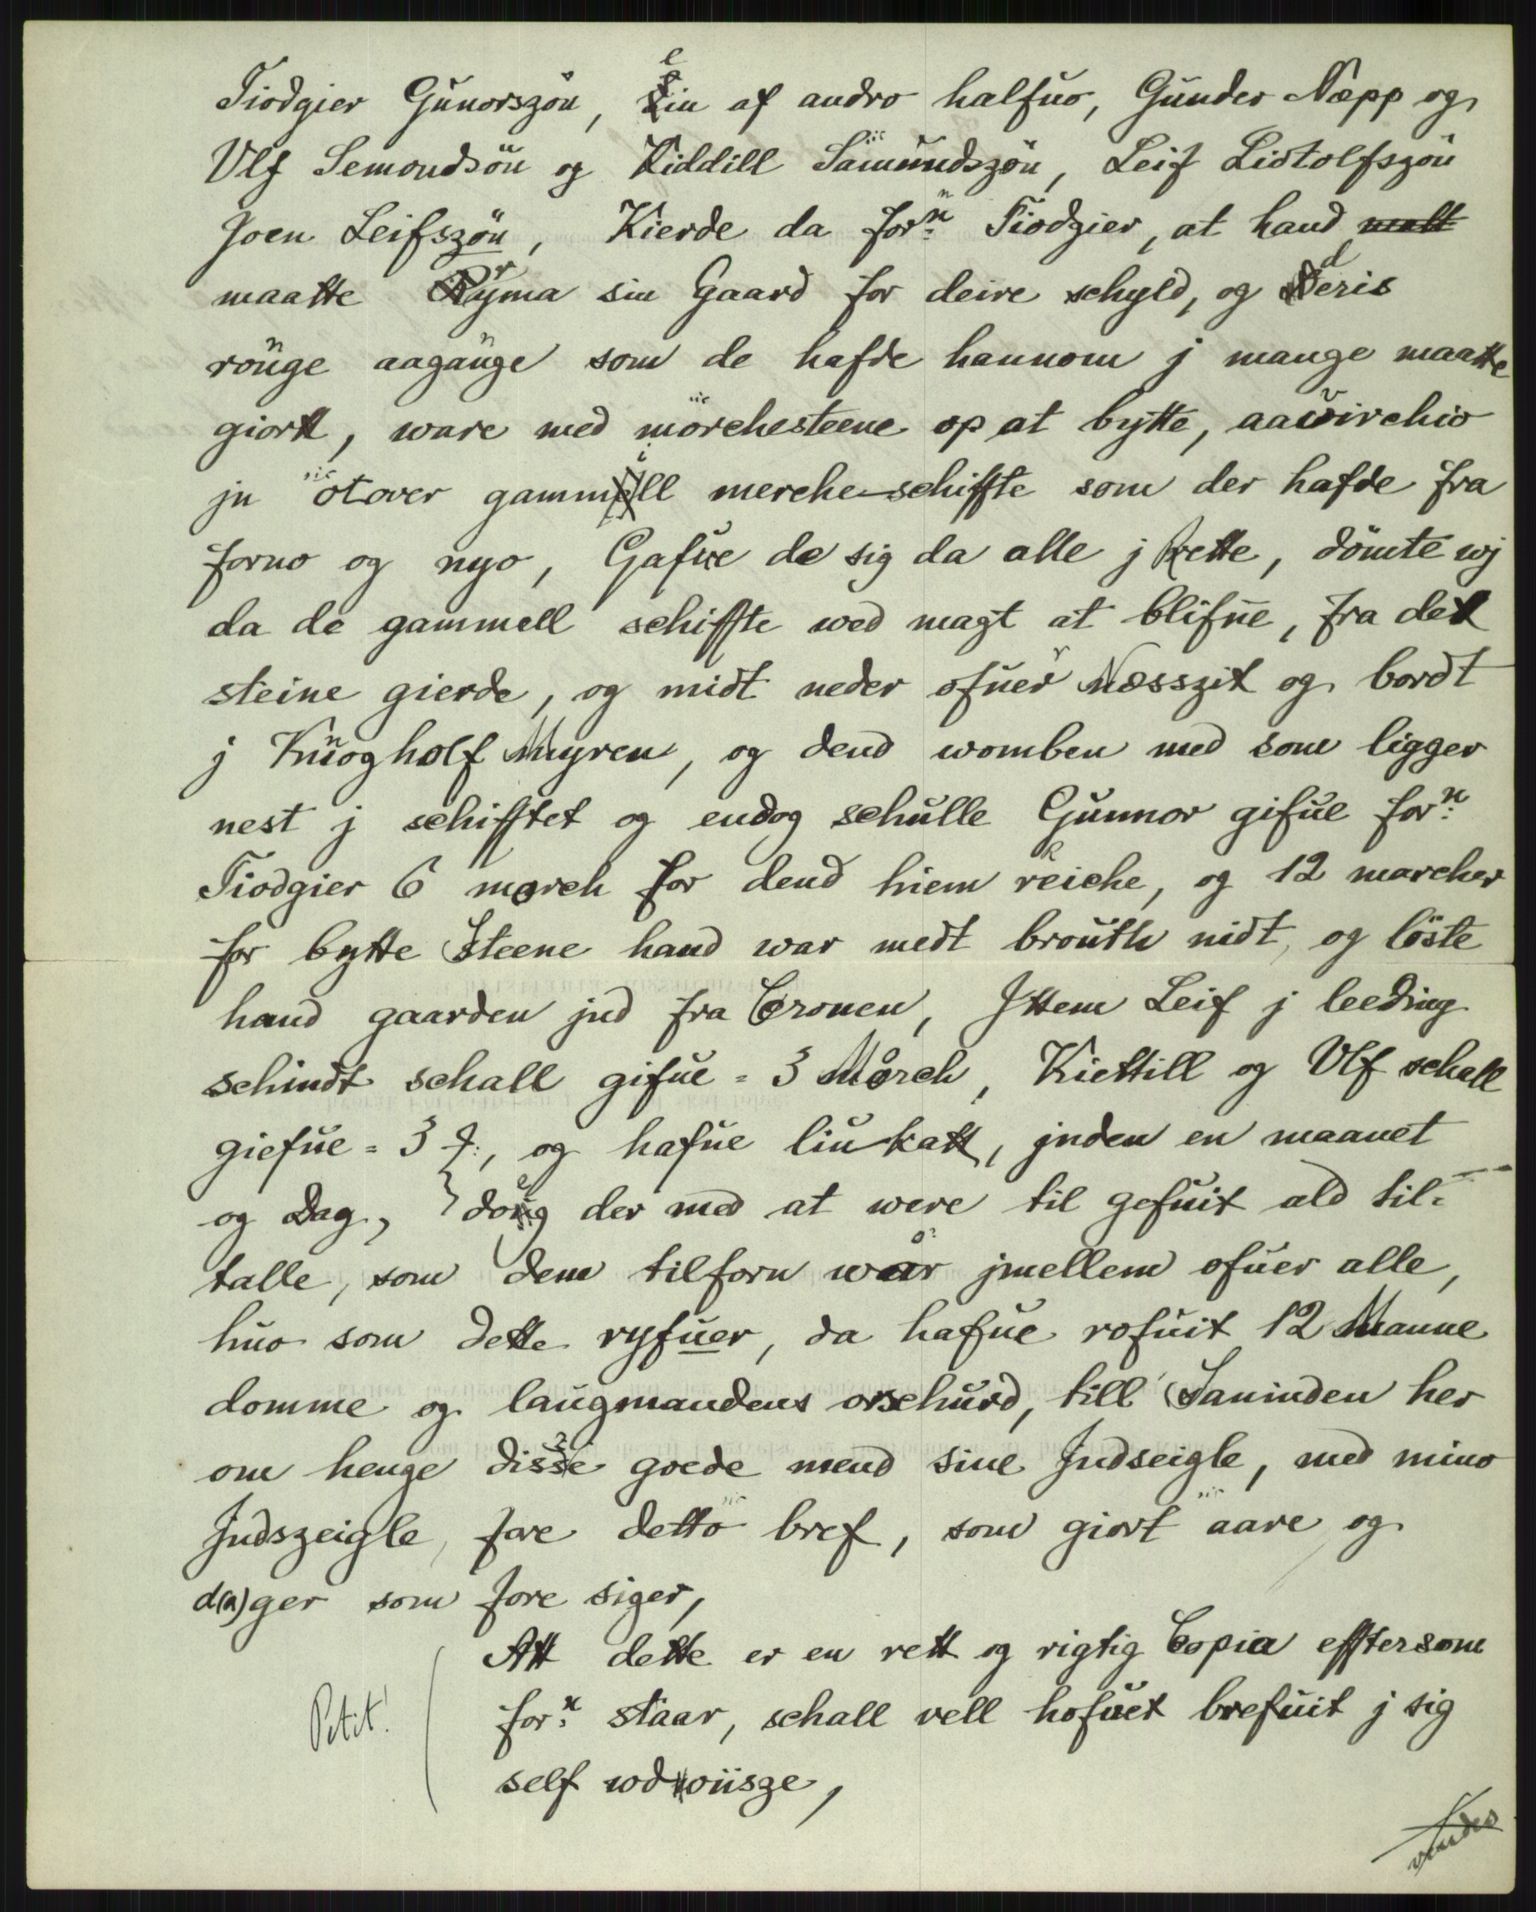 Tiodgier Gunorszön, ein af andro halfuo, Gunder Næpp og
Vlf Semondsön og Kiddill Sämundszön, Leif Liotolfszön
Joen Leifszön, Kierde da forn: Tiodgier, at hand matt
maatte Ryma sin Gaard for deire schyld, og deris
rönge aagange som de hafde hannom j mange maatte
giortt, ware med mörchesteene op at bytte, aawirchio
jn otover gammill merche-schiffte som der hafde fra
forno og nyo, Gafue de sig da alle j Rette, dömte wj
da de gammell schiffte wed magt at blifue, fra dett
steine gierde, og midt neder ofuer Næsszit og bordt
j Knogholf Myren, og dend womben med som ligger
nest j schifftet og endog schulle Gunnor gifue forn:
Tiodgier 6 march for dend hiem reiche, og 12 marcher
for bytte Steene hand war medt brouth nidt, og löste
hand gaarden jnd fra Cronen, Ittem Leif j leeding
schindt schall gifue = 3 Mörch, Kiettill og Vlf schall
giefue = 3 , og hafue liu katt, jnden en maanet
og Dag, der med at were til gefuit ald til=
talle, som dem tilforn war jmellem ofuer alle,
huo som dette ryfuer, da hafue rofuit 12 Manne
domme og laugmandens orschurd, till Saninden her
om henge disse goede mend sine Indseigle, med mino
Indszeigle, fore detto bref, som giort aare og
d(a)ger som fore siger,
Att dette er en rett og rigtig Copia efftersom
forn: staar, schall vell hofuet brefuit j sig
self wdwiisze,
Petit!
vendes